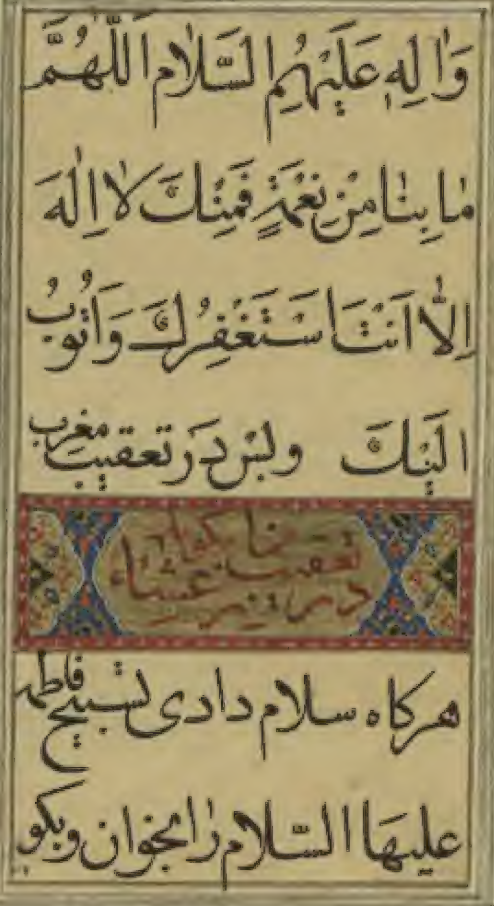 وَاٰلِهِ عَلَيْهِمُ السَّلَام اَللّٰهُمَّ
مٰا بِنٰا مِنْ نِعْمَةٍ فَمِنْكَ لٰا اِلٰهَ
اِلّٰا اَنْتَ اَسْتَغْفِرُكَ وَاَتُوبُ
اِلَيْكَ وبس در تعقیب مغرب
تعقیب
در عشاء
هرکاه سلام دادی تسبیح فاطمه
علیها السّلام رٰا بخوان وبکو